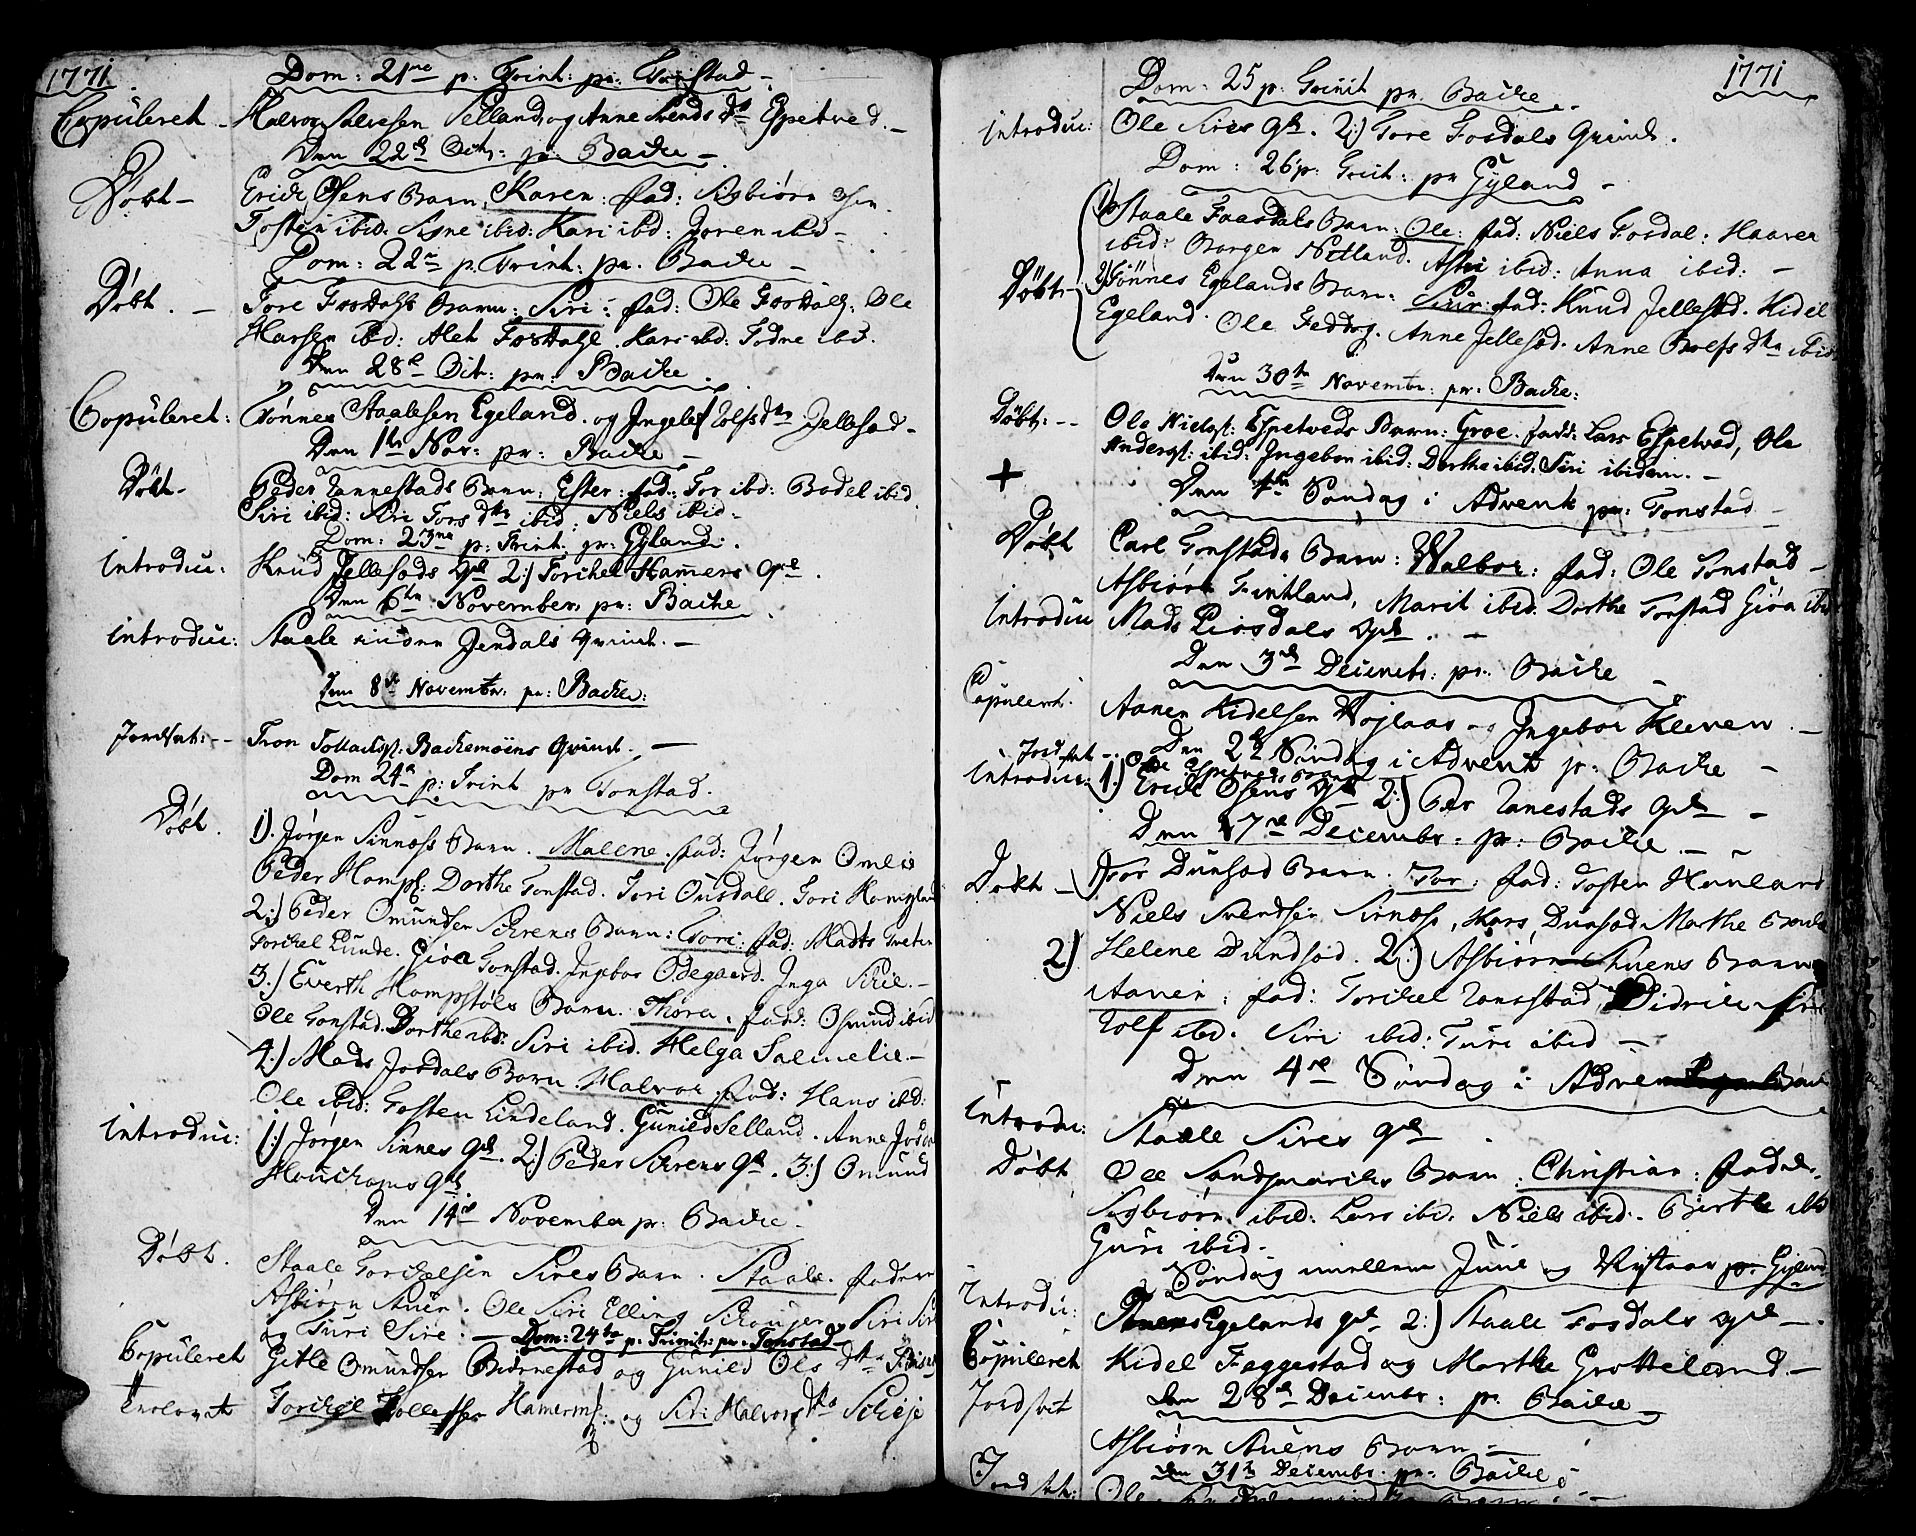 1771.
Dom: 21ne p. Trinit: pr: Tonstad –
Copuleret – Halvor Salvesen Selland og Anne Svends dtr Espetved. –
Den 22d Octr: pr: Backe –
Døbt – Erich Osens Barn, Karen: fad: Sigbiørn Osen
Tosten ibid: Signe ibid: Kari ibd: Joren ibd –
Dom: 22de p. Trinit: pr. Backe –
Døbt. – Tore Fosdahls Barn: Siri: fad: Ole Fosdahl: Ole
Hansen ibd: Alet Fosdahl. Kari ibd: Todne ibd.
Den 28d Oct: pr: Backe
Copuleret: Tönnes Staalesen Egeland og Ingelef Rolfs dtr Jellesad –
Den 1te Nov: pr: Backe –
Døbt – Peder Rannestads Barn: Ester: fad: Tor ibd: Bodel ibid
Siri ibid: Siri Tors dtr ibid: Niels ibid –
Dom: 23ne p: Trinit: pr: Gyland: .
Introduc: Knud Jellesads Qvl 2:) Torchel Hamers Qvl .
Den 6te November pr: Backe
Introduc: Staale Jendals Qvind. –
Den 8de Novembr: pr: Backe:
Jordsat: – Tron Tollachs: Backemoens Qvind. –
Dom 24d p: Trinit pr Tonstad.
Døbt. 1). Jørgen Sinnæss Barn. Malene. fad: Jørgen Omlie
Peder Homps: Dorthe Tonstad. Tori Ousdall. Tori
2:) Peder Omundsen Schrens Barn: Tori: fad: Madts
Torchel Lunde. Giøa Tonstad. Ingebor Ødegaard. Inga
3:) Everth Hompstøls Barn. Thora. fadd: Osmund ibid
Ole Tonstad. Dorthe ibd: Siri ibid. Helga Salmelie –
4:) Mads Josdals Barn Halvor fad: Hans ibd:
Ole ibid: Tosten Lindeland. Gunild Selland. Anne
Introduc: 1:) Jørgen Sinnes Qvl. 2:) Peder Schrens Qvl. 3:) Omund
Qvl
Den 14de November pr: Backe –
Døbt. Staale Torchelsen Sires Barn. Staale. fadere
Asbiørn Stuen. Ole Siri Elling Siri
og Turi Sire. – Dom: 24de p: Trinit: pr: Tonstad –
Copuleret Gitle Omundsen Biørnestad og Gunild Ols dtr
Torchel Hamerm: og Siri Halvors dtr
1771
Dom: 25 p. Trinit pr. Backe –
Introduc: Ole Sires Qvl. 2:) Tore Fosdals Qvind.
Dom: 26 p: Trinit: pr Gyland –
1) Staale Faasdals Barn: Ole: fad: Niels Fosdal: Haaver
ibid: Borgen Netland. Astri ibid: Anna ibid: –
Døbt – 2) Tönnes Egelands Barn: Siri: fad: Knud Jellesad. Kidel
Egeland. Ole. Anne Jellesad. Anne Rolfs dtr ibid
Den 30te Novembr: pr: Backe:
Døbt: – Ole Nielss: Espetveds Barn: Groe. fadd: Lars Espetved, Ole
Anderss: ibid: Ingebor ibid: Dorthe ibid. Siri ibidem. –
+
Den 1te Søndag i Advent pr: Tonstad –
Døbt Carl Tonstads Barn: Walbor: fad: Ole Tonstad –
Asbiørn Fintland, Marit ibid. Dorthe Tonstad Giøa ibid
Introduc Mads Liosdals Qvl. –
Den 3de Decembr: pr: Backe –
Copulerit: Aanen Kidelsen og Ingebor Kleven. –
Den 2d Søndag i Advent pr: Backe –
Jordsat – Ole Espetveds Barn
Introduc: 1:) Erich Osens Qvl 2:) Per Ranestads Qvl –
Den 17de Decembr: pr: Backe –
Døbt – 1) Tor Dunsad Barn. Tor: fad: Tosten
Niels Svendsen Sirnæss, Hans Dunsad Marthe
2) Helene Dundsad. 2:) Asbiørn Stuens Barn
Aanen: fad: Torchel Ranestad Didrich
Rolf ibd. Siri ibid: Turi ibid –
Den 4de Søndag i Advent
Introdu: Staale Sires Qvl.
Døbt Ole Sandsmarks Barn: Christian: fadde.
Sigbiørn ibid: Lars ibd. Niels ibid. Birthe ibd
Guri ibid.
Søndag imellem Juul og Nytaar pr: Gyland
Introdu: Tönnes Egelands Qvl 2:) Staale Fosdals Qvl –
Copuleret Kidel Feggestad og Marthe Grotteland –
Den 28d Decembr: pr: Backe –
Jordsat Asbiørn Stuens Barn –
Den 31te Decembr. pr: Backe
Jordsat: Ole